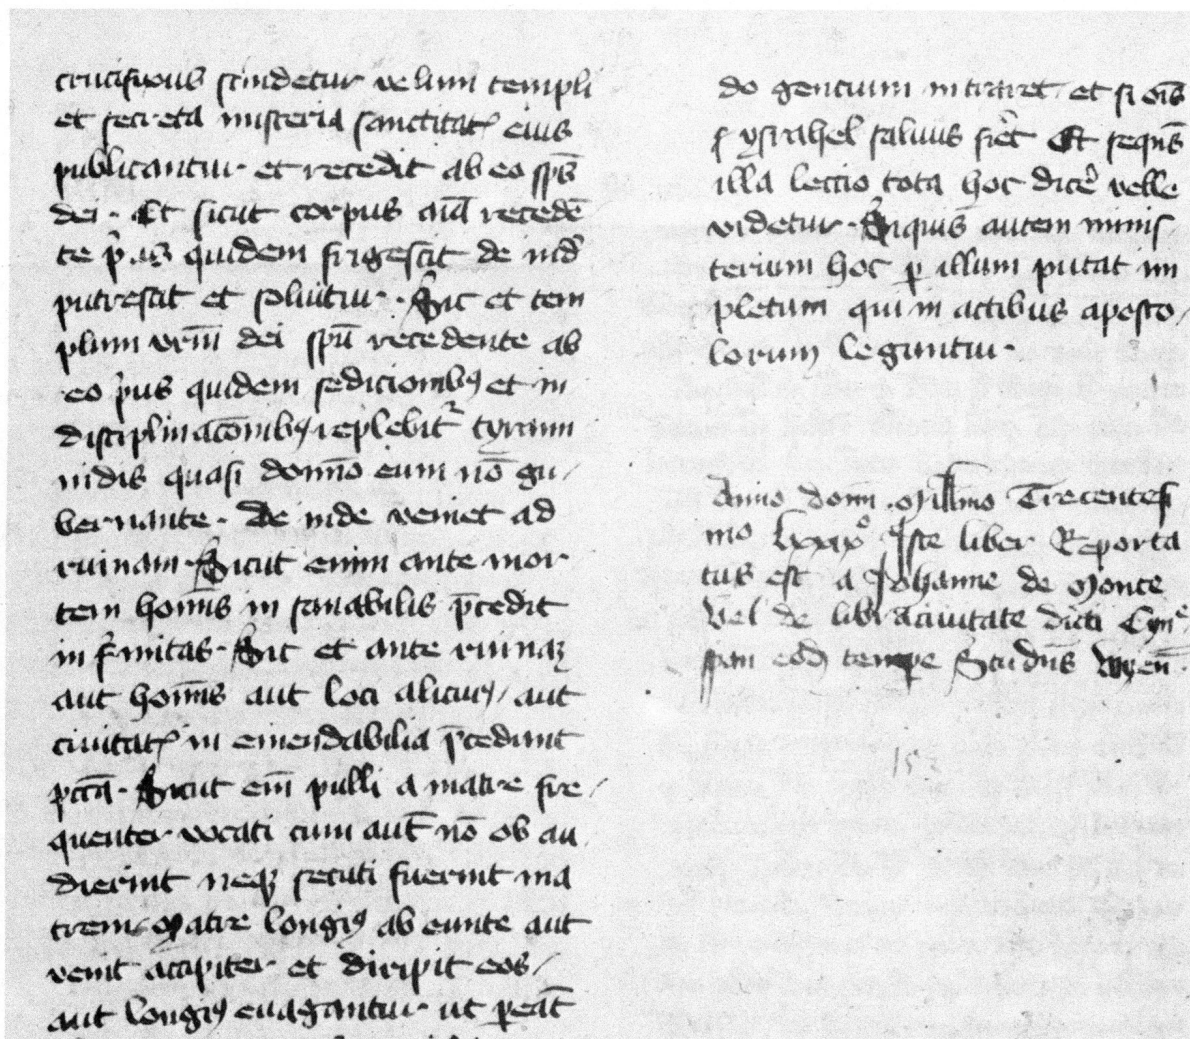 crucifixus scindetur velum templi
et secreta misteria sanctitat eius
publicantur et recedit ab eo sp̄s
dei · Et sicut corpus aīa recedē
te p̾us quidem frigescit de ind̾
putrescit et soluitur · Sic et tem
plum vr̄m dei sp̄u recedente ab
eo p̾us quidem sedicionibꝫ et in
disciplinacōnibꝫ replebit᷑ tyrann
nidis quasi domīo eum nō gu/
bernante · De inde veniet ad
ruinam Sicut enim ante mor
tem homīs in sanabilis p̄cedit
in f̾mitas · Sic et ante ruinaꝫ
aut homīs aut loci alicuiꝰ / aut
ciuitat in emendabilia p̄cedunt
pctā̄ · Sicut eīm pulli a matre fre/
quenter vocati cum aut̄ nō ob au/
dierint neqꝫ secuti fuerint ma
trem Matre longiꝰ ab eunte aut
venit accipiter et diripit eos /
aut longiꝰ euagantur ut ꝑeāt
do gencium intraret et si oīs
ysrahel saluus fieret Et sequēs
illa leccio tota hoc dicere velle
videtur · Siquis autem minis
terium hoc ꝑ illum putat im
pletum qui in actibus aposto/
lorum leguntur ·
Anno domī Millīmo Trecentesi
mo lxxixº Iste liber Reporta
tus est a Johanne de Monte
Vel de libra ciuitate dicti Cyn
span eodem tempe Studēs Wyen̄ ·
152